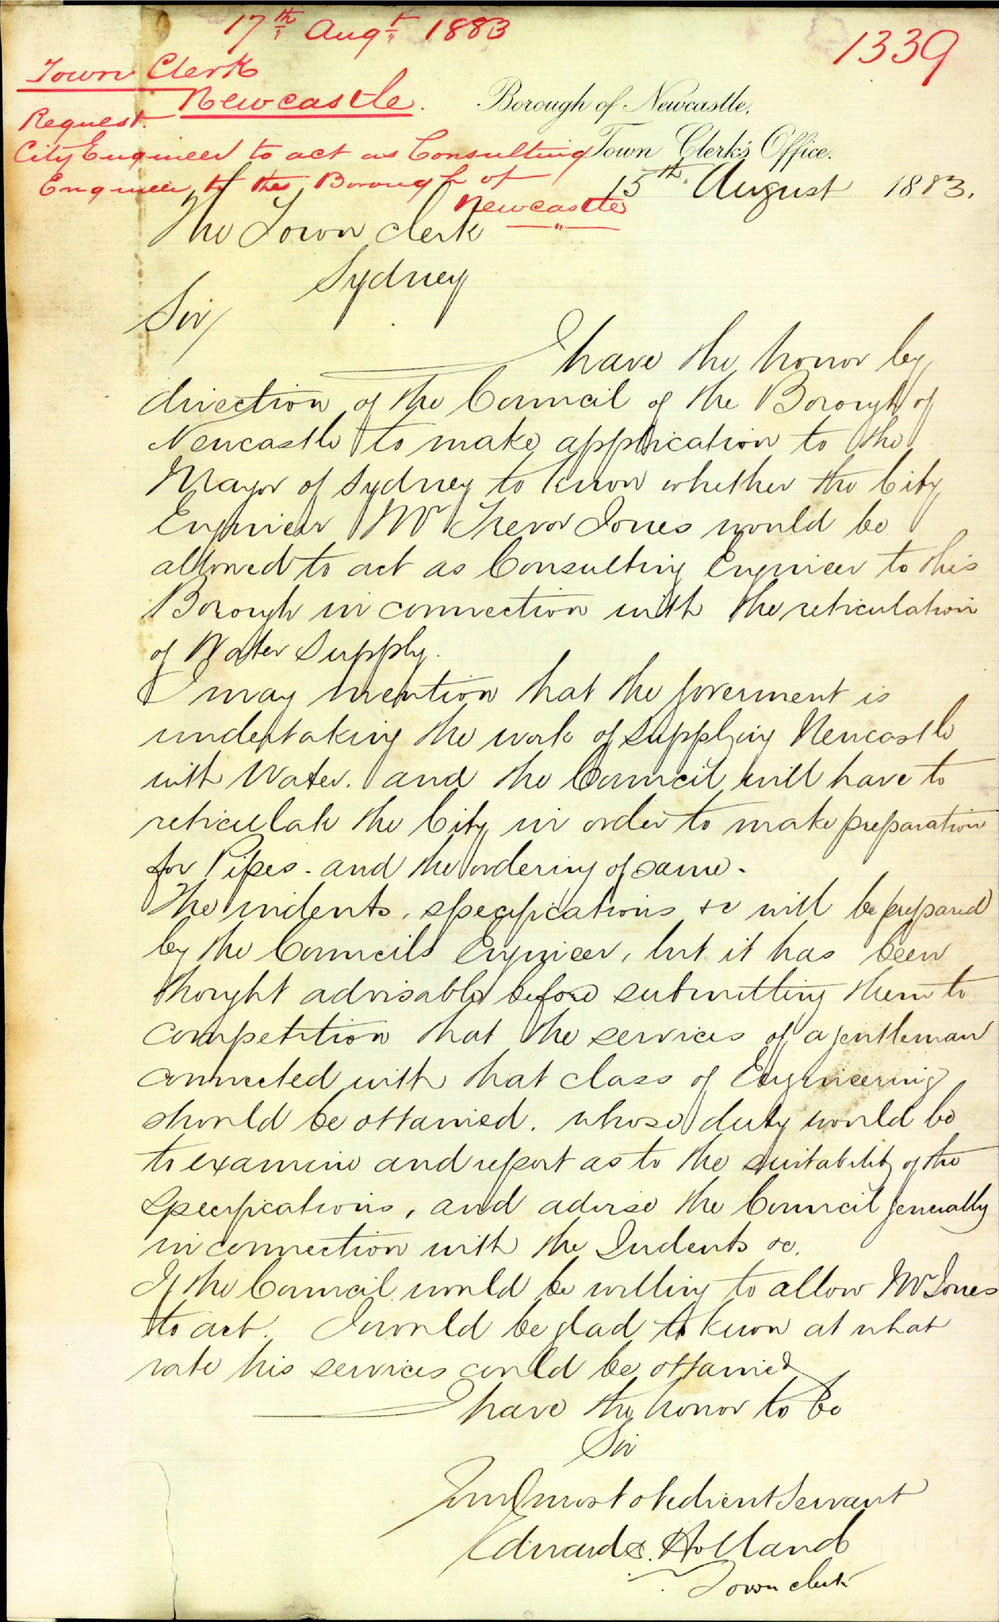 17th Augt 1883
1339
Town Clerk
Newcastle.
Request
City Engineer to act as Consulting
Engineer to the Borough of
Newcastle
Borough of Newcastle,
Town Clerk's Office.
15th August 1883.
The Town Clerk
Sydney
Sir/
I have the honor by
direction of the Council of the Borough of
Newcastle to make application to the
Mayor of Sydney to know whether the City
Engineer Mr Trevor Jones would be
allowed to act as Consulting Engineer to this
Borough in connection with the reticulation
of Water Supply.
I may mention that the Goverment is
undertaking the work of supplying Newcastle
with Water. and the Council will have to
reticulate the City in order to make preparation
for Pipes. and the ordering of same.
The indents, specifications &c will be prepared
by the Councils Engineer, but it has been
thought advisable before submitting them to
competition that the services of a gentleman
connected with that class of Engineering
should be ottained. whose duty would be
to examine and report as to the suitability of the
specifications, and advise the Council generally
in connection with the Indents &c.
If the Council would be willing to allow Mr Jones
to act. I would be glad to know at what
rate his services could be ottained
I have the honor to be
Sir
Your most obedient Servant
Edward S. Holland
Town clerk